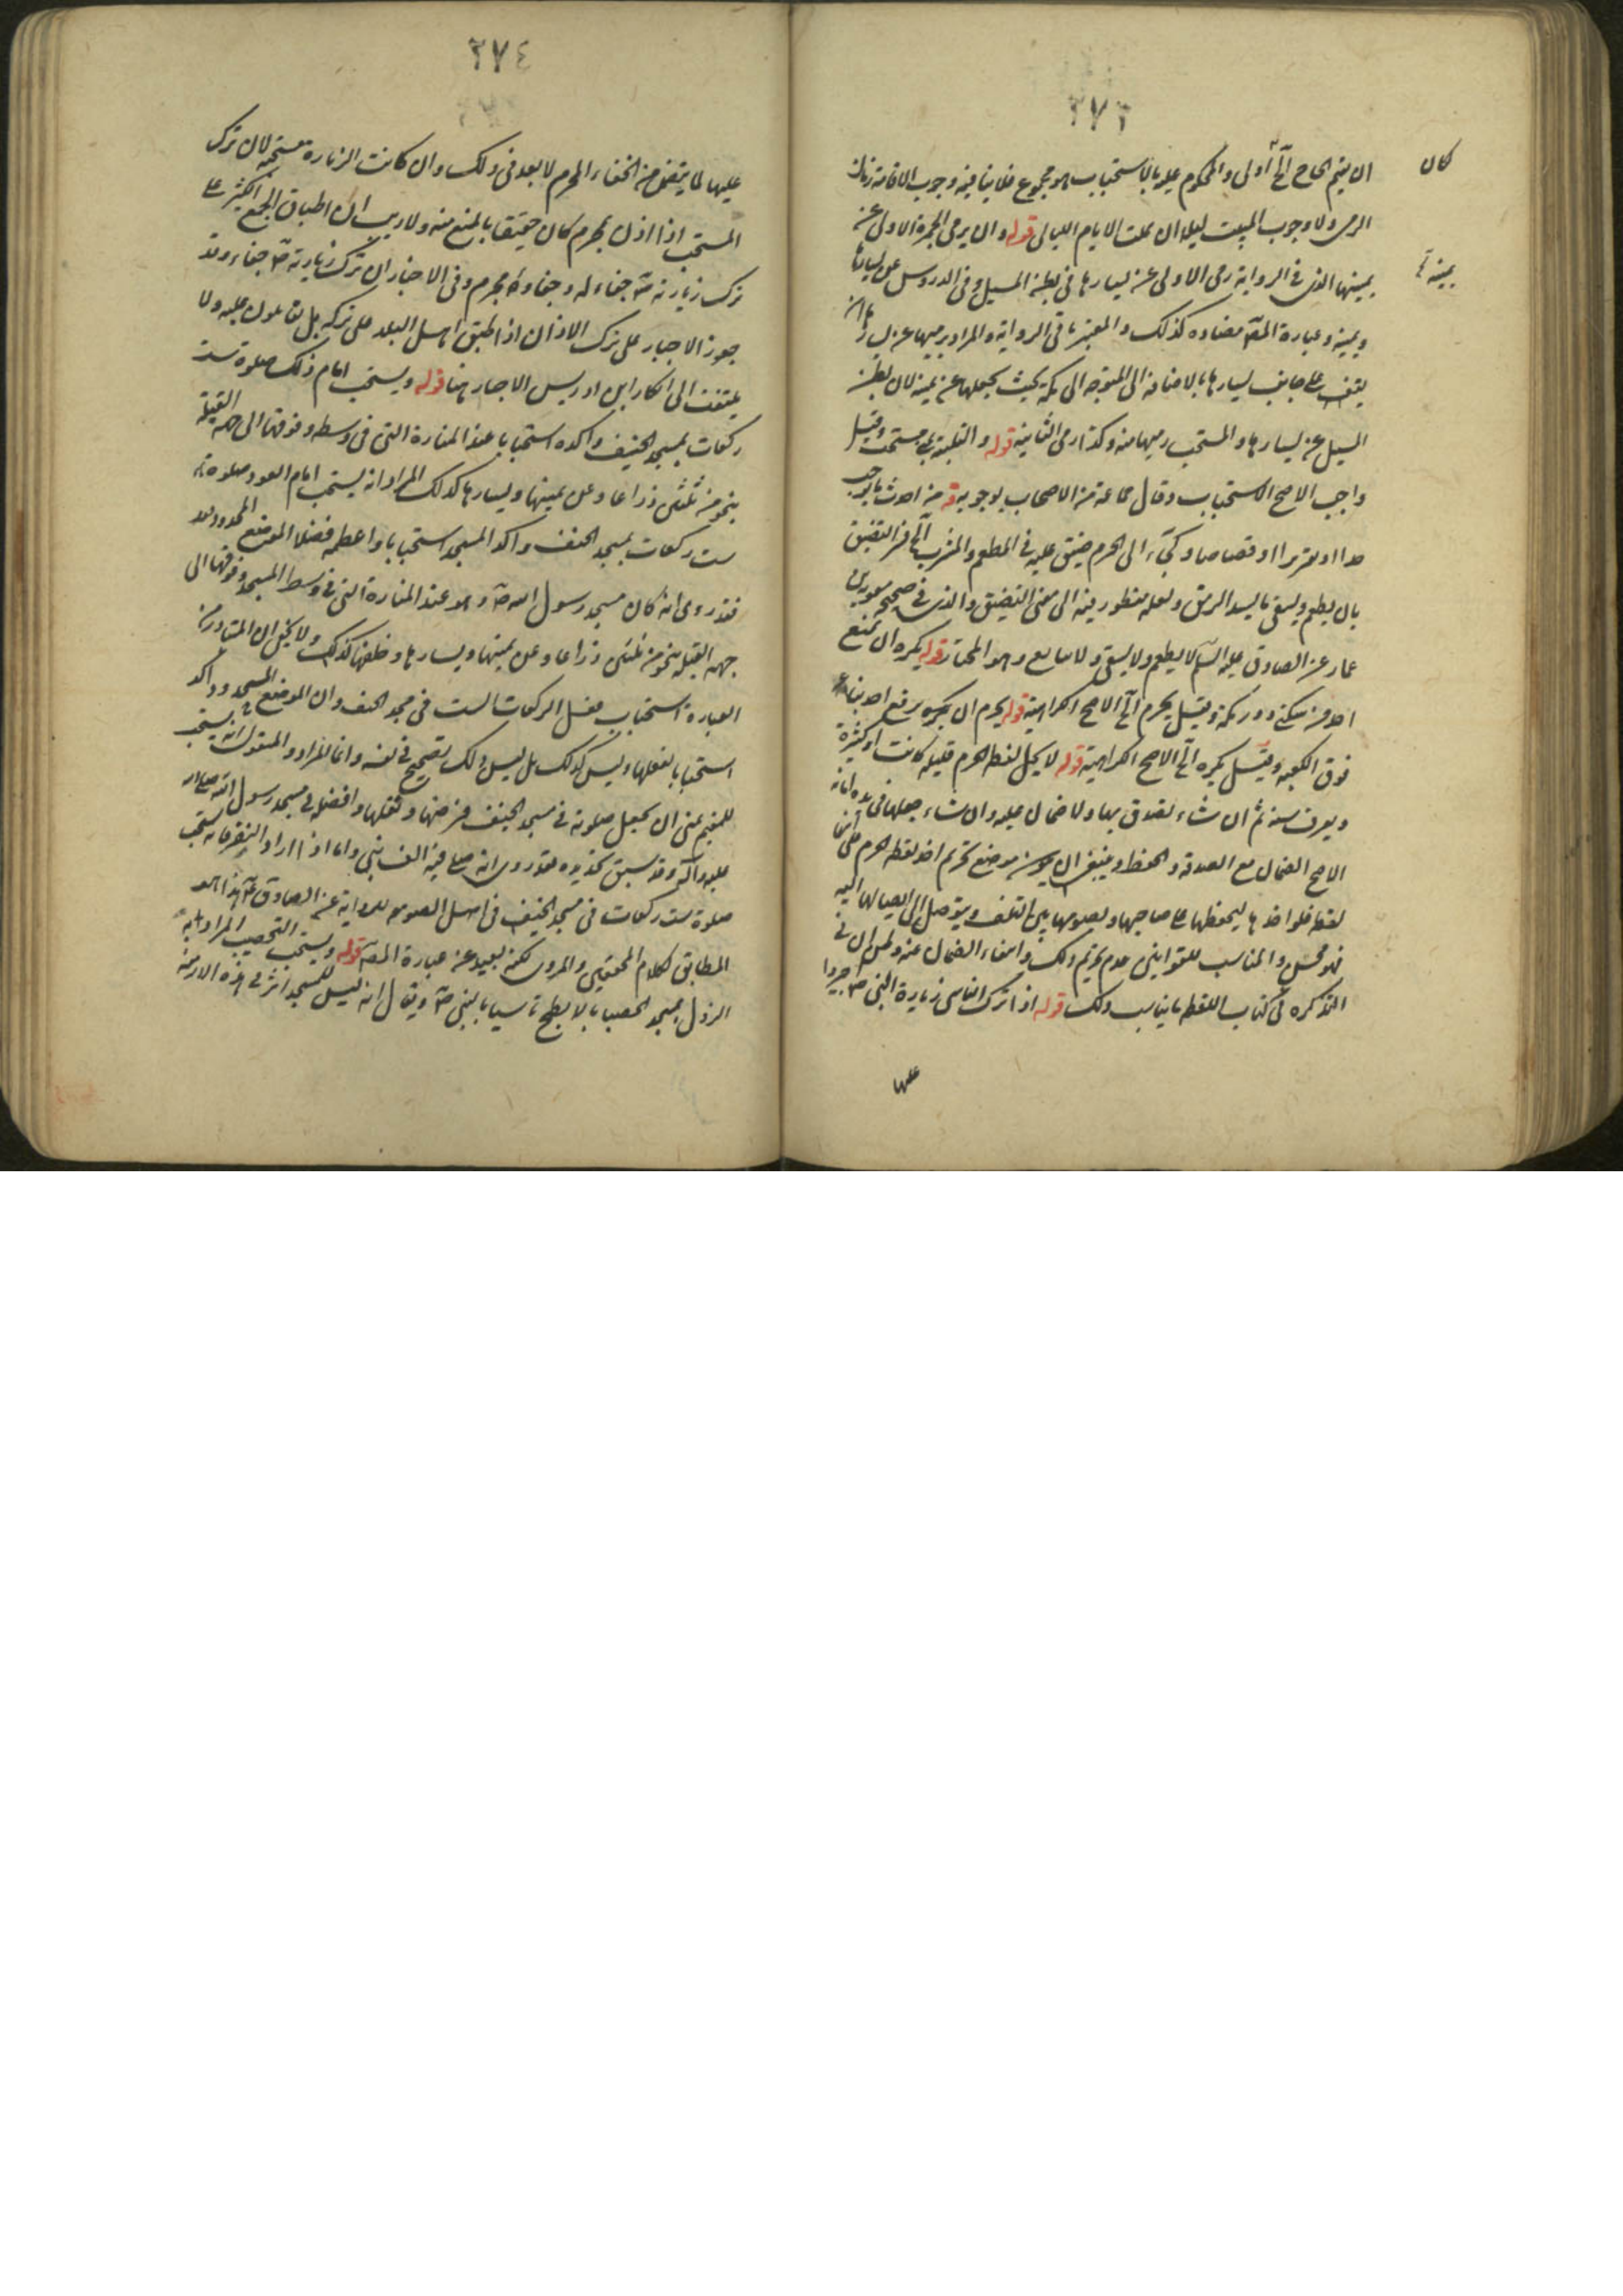 ٢٧٣
كان
ان يقيم الحاج الخ اولى والمحكوم عليه بالاستحباب هو مجموع فلا ينافيه وجوب الاقامة زمان
الرمى ولا وجوب المبيت ليلا ان بات الايام الليالى قوله وان يرمى الجمرة الاولى عن
يمينها الذى فى الرواية رمى الاولى عن يسارها فى بطن المسيل وفى الدروس عن يسارها
يمينه
ويمينه وعبارة المصه مضادة كذلك والمعتبر ما فى الرواية والمراد برميها عن يسارها ان
يقف على جانب يسارها بالاضافة الى المتوجه الى مكة بحيث يجعلها عن يمينه لان بطن
المسيل عن يسارها والمستحب رميها منه وكذا رمى الثانية قوله والتكبير بمنى مستحب وقيل
واجب الاصح الاستحباب وقال جماعة من الاصحاب بوجوبه قوله من احدث ما يوجب
حدا او تعزيرا او قصاصا ولجاء الى الحرم ضيق عليه فى المطعم والمشرب الخ فسر التضيق
بان يطعم ويسقى ما يسد الرمق ولعله منظور فيه الى معنى التضيق والذى فى صحيح معوية بن
عمار عن الصادق عليه السلم لا يطعم ولا يسقى ولا يبايع وهو المختار قوله يكره ان يمنع
احد من سكنى دور مكة وقيل يحرم الخ الاصح الكراهية قوله يحرم ان يرفع احد بناء
فوق الكعبه وقيل يكره الخ الاصح الكراهية قوله لا يحل لقطة الحرم قليلة كانت او كثيرة
ويعرف سنة ثم ان شاء تصدق بها ولا ضمان عليه وان شاء جعلها فى يده امانة
الاصح الضمان مع الصدقة والحفظ وينبغى ان يكون موضع تحريم اخذ لقطة الحرم على
لقطه فلو اخذها ليحفظها على صاحبها ويصونها من التلف ويتوصل الى ايصالها اليه
فهو محسن والمناسب للقوانين عدم تحريم ذلك وانتفاء الضمان عنه وظنى ان فى
التذكره فى كتاب اللقطة ما يناسب ذلك قوله اذا ترك الناس زيارة النبى ص اجبروا
عليها
٢٧٤
عليها لما يتضمن من الجفاء المحرم لا بعد فى ذلك وان كانت الزيارة مستحبة لان ترك
المستحب اذا اذن بمحرم كان حقيقا بالمنع منه ولا ريب ان اطباق الجمع الكثير على
ترك زيارته ص جفاء له وجفاؤه محرم وفى الاخبار ان ترك زيارته ص جفاء وقد
جوز الاجبار على ترك الاذان اذا اطبق اهل البلد على تركه بل يقاتلون عليه ولا
يلتفت الى انكار ابن ادريس الاجبار هنا قوله ويستحب امام ذلك صلوة ست
ركعات بمسجد الخيف واكده استحبابا عند المنارة التى فى وسطه وفوقها الى جهة القبلة
بنحو من ثلثين ذراعا وعن يمينها ويسارها كذلك المراد انه يستحب امام العود صلوة
ست ركعات بمسجد الخيف واكد المسجد استحبابا واعظمه فضلا الموضع المحدود بعد
فقد روى انه كان مسجد رسول الله ص وهو عند المنارة التى فى وسط المسجد وفوقها الى
جهة القبلة بنحو من ثلثين ذراعا وعن يمينها ويسارها وخلفها كذلك ولا يخفى ان المتبادر من
العبارة استحباب فعل الركعات الست فى مسجد الخيف وان الموضع المحدود آكد
استحبابا بفعلها وليس كذلك بل ليس ذلك بصحيح فى نفسه وانما المراد والمنقول انه يستحب
للمقيم بمنى ان يجعل صلوته فى مسجد الخيف فرضها ونفلها وافضله فى مسجد رسول الله صلى الله
عليه وآله وقد سبق تحديده فقد روى انه صلى فيه الف نبى واما اذا اراد النفر فانه يستحب
صلوة ست ركعات فى مسجد الخيف فى اصل الصومعه للرواية عن الصادق ع هذا هو
المطابق لكلام المحققين والمروى لكنه بعيد عن عبارة المصه قوله ويستحب التحصيب المراد به
النزول بمسجد الحصباء بالابطح تاسيا بالنبى ص ويقال انه ليس للمسجد اثر فى هذه الازمنة